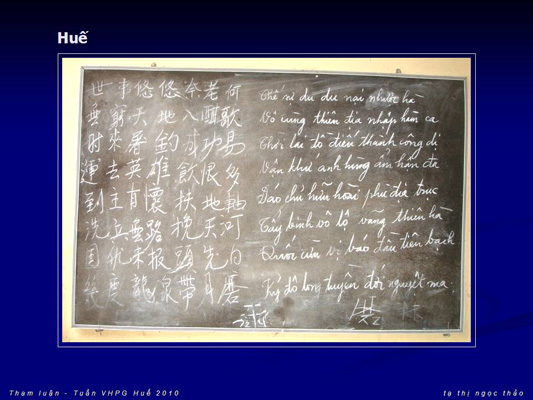 Huế
世事悠悠奈老何 Thế sự du du nại nhược hà
無窮天地入酣歌 Vô cùng thiên địa nhập hàm ca
时來屠釣成功易 Thời lai đồ điếu thành công dị
運去英雄飲恨多 Vận khứ anh hùng ẩm hận đa
到主有懷扶地軸 Đáo chủ hữu hoài phù địa trục
洗兵無路挽天河 Tẩy binh vô lộ vãng thiên hà
国仇未报頭先白 Quốc cừu vị báo đầu tiên bạch
幾度龍泉帶月磨 Kỷ độ long tuyền đới nguyệt ma
Tham luận - Tuần VHPG Huế 2010
tạ thị ngọc thảo